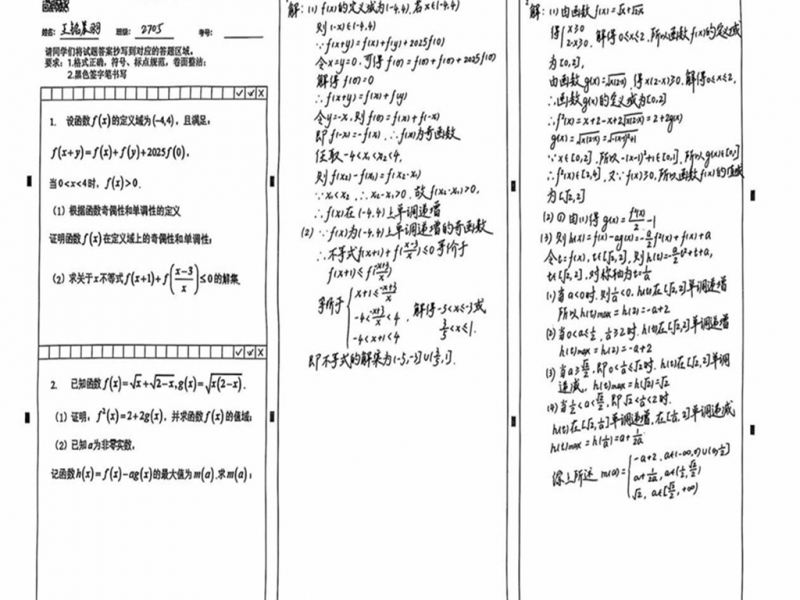 姓名: 王皓晨羽 班级: 2705 考号:
请同学们将试题答案抄写到对应的答题区域。
要求: 1.格式正确, 符号、标点规范, 卷面整洁;
2.黑色签字笔书写
1. 设函数f(x)的定义域为(-4,4), 且满足:
f(x+y)=f(x)+f(y)+2025f(0),
当0<x<4时, f(x)>0.
(1) 根据函数奇偶性和单调性的定义
证明函数f(x)在定义域上的奇偶性和单调性;
(2) 求关于x不等式f(x+1)+f((x-3)/x)≤0的解集.
2. 已知函数f(x)=√x+√(2-x), g(x)=√(x(2-x)).
(1) 证明: f²(x)=2+2g(x), 并求函数f(x)的值域;
(2) 已知a为非零实数,
记函数h(x)=f(x)-ag(x)的最大值为m(a).求m(a);
解: (1) f(x)的定义域为(-4,4), 若x∈(-4,4)
则(-x)∈(-4,4)
∵f(x+y)=f(x)+f(y)+2025f(0)
令x=y=0, 可得f(0)=f(0)+f(0)+2025f(0)
解得f(0)=0
∴f(x+y)=f(x)+f(y)
令y=-x, 则f(0)=f(x)+f(-x)
即f(-x)=-f(x). ∴f(x)为奇函数
任取-4<x₁<x₂<4,
则f(x₂)-f(x₁)=f(x₂-x₁)
∵x₁<x₂, ∴x₂-x₁>0, 故f(x₂-x₁)>0,
∴f(x)在(-4,4)上单调递增
(2) ∵f(x)为(-4,4)上单调递增的奇函数
∴不等式f(x+1)+f((x-3)/x)≤0等价于
f(x+1)≤f(
等价于
x+1≤
-4< <4, 解得-5<x≤-3或
-4<x+1<4
3/5<x≤1.
即不等式的解集为(-5,-3]∪(3/5,1].
解: (1) 由函数f(x)=√x+√(2-x)
得{x≥0 2-x≥0, 解得0≤x≤2, 所以函数f(x)的定义域
为[0,2],
由函数g(x)=√(x(2-x)), 得x(2-x)≥0, 解得0≤x≤2,
∴函数g(x)的定义域为[0,2]
∴f²(x)=x+2-x+2√(x(2-x))=2+2g(x)
g(x)=√(x(2-x))=√(-(x-1)²+1)
∵x∈[0,2], 所以-(x-1)²+1∈[0,1], 所以g(x)∈[0,1]
∴f²(x)∈[2,4], 又∵f(x)≥0, 所以函数f(x)的值域
为[√2,2]
(2) ① 由(1)得g(x)=f²(x)/2-1
(3) 则h(x)=f(x)-ag(x)=-a/2f²(x)+f(x)+a
令t=f(x), t∈[√2,2], 则h(t)=-a/2t²+t+a,
t∈[√2,2], 对称轴为t=1/a
(1) 当a<0时, 则1/a<0, h(t)在[√2,2]单调递增
所以h(t)max=h(2)=-a+2
(2) 当0<a≤1/2, 1/a≥2时, h(t)在[√2,2]单调递增
h(t)max=h(2)=-a+2
(3) 当a≥√2/2, 即0<1/a≤√2时, h(t)在[√2,2]单调
递减, h(t)max=h(√2)=√2
(4) 当1/2<a<√2/2, 即√2<1/a<2时,
h(t)在[√2,1/a]单调递增, 在[1/a,2]单调递减
h(t)max=h(1/a)=a+1/2a
综上所述 m(a)={-a+2, a∈(-∞,0)∪(0,1/2]
a+1/2a, a∈(1/2,√2/2)
√2, a∈[√2/2,+∞)